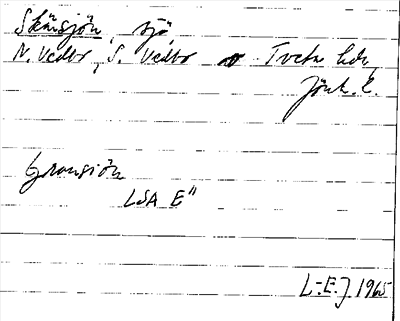 Skärsjön, sjö
N. Vedbo, S. Vedbo o Tveta hdr,
Jönk. l.
Gransjön
LSA E"
L-E.J. 1965